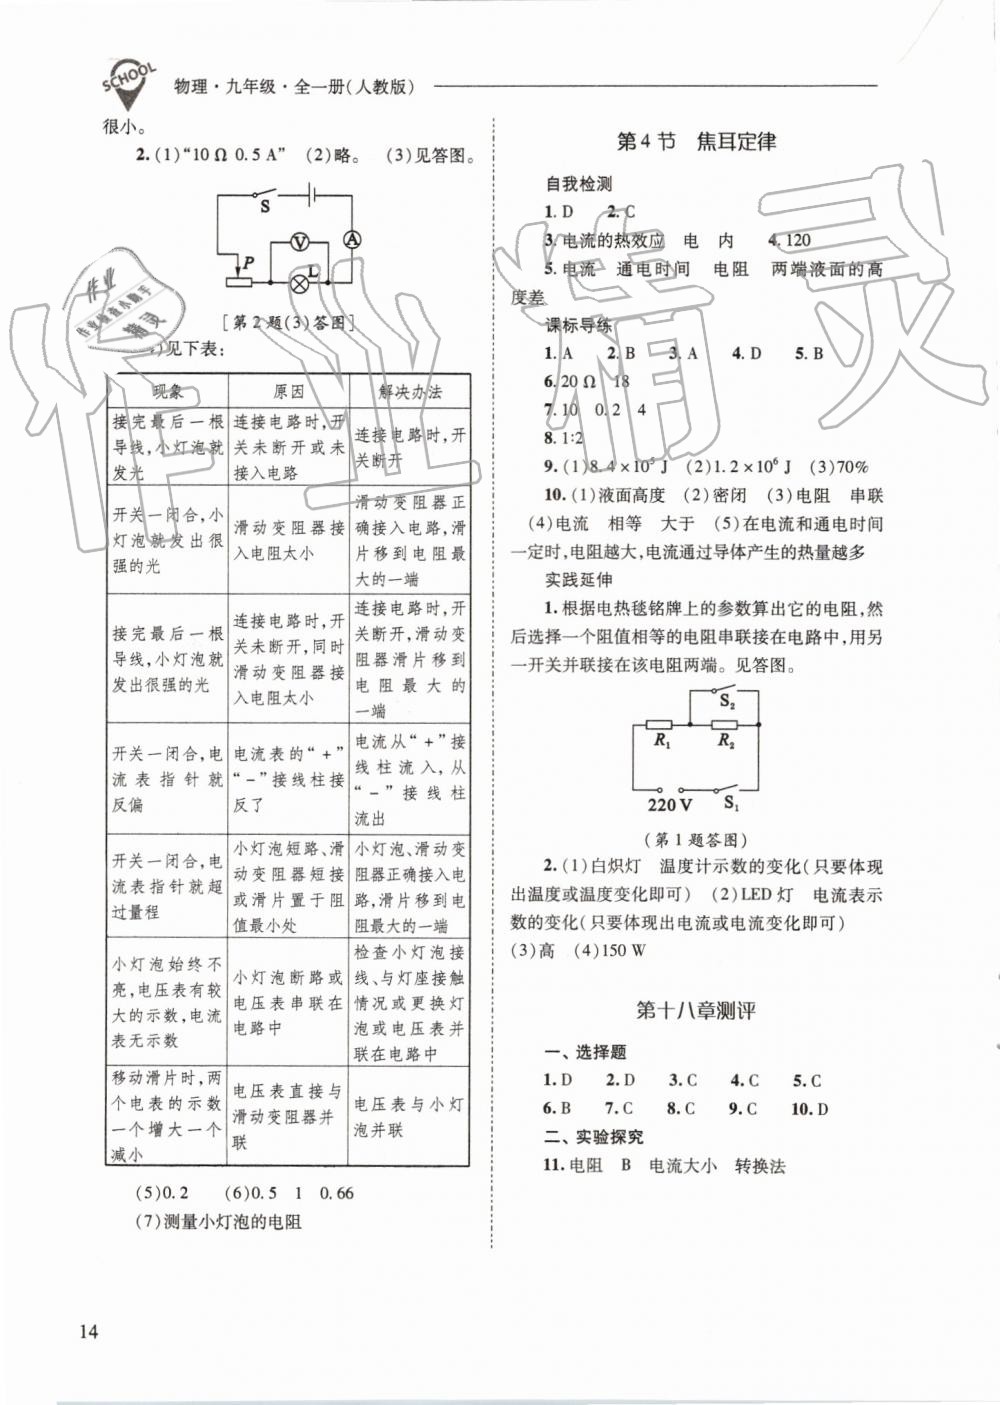 SCHOOL
物理·九年级·全一册(人教版)
很小。
2.(1)“10 Ω 0.5 A” (2)略。 (3)见答图。
S
V
A
P
L
[第2题(3)答图]
)见下表:
现象 原因 解决办法
接完最后一根
导线,小灯泡就
发光
连接电路时,开
关未断开或未
接入电路
连接电路时,开
关断开
开关一闭合,小
灯泡就发出很
强的光
滑动变阻器接
入电阻太小
滑动变阻器正
确接入电路,滑
片移到电阻最
大的一端
接完最后一根
导线,小灯泡就
发出很强的光
连接电路时,开
关未断开,同时
滑动变阻器接
入电阻太小
连接电路时,开
关断开,滑动变
阻器滑片移到
电阻最大的
一端
开关一闭合,电
流表指针就
反偏
电流表的“+”
“-”接线柱接
反了
电流从“+”接
线柱流入,从
“-”接线柱
流出
开关一闭合,电
流表指针就超
过量程
小灯泡短路、滑
动变阻器短接
或滑片置于阻
值最小处
小灯泡、滑动变
阻器正确接入电
路,滑片移到电
阻最大的一端
小灯泡始终不
亮,电压表有较
大的示数,电流
表无示数
小灯泡断路或
电压表串联在
电路中
检查小灯泡接
线、与灯座接触
情况或更换灯
泡或电压表并
联在电路中
移动滑片时,两
个电表的示数
一个增大一个
减小
电压表直接与
滑动变阻器并
联
电压表与小灯
泡并联
(5)0.2 (6)0.5 1 0.66
(7)测量小灯泡的电阻
14
第4节 焦耳定律
自我检测
1.D 2.C
3.电流的热效应 电 内 4.120
5.电流 通电时间 电阻 两端液面的高
度差
课标导练
1.A 2.B 3.A 4.D 5.B
6.20 Ω 18
7.10 0.2 4
8.1∶2
9.(1)8.4×10⁵ J (2)1.2×10⁶ J (3)70%
10.(1)液面高度 (2)密闭 (3)电阻 串联
(4)电流 相等 大于 (5)在电流和通电时间
一定时,电阻越大,电流通过导体产生的热量越多
实践延伸
1.根据电热毯铭牌上的参数算出它的电阻,然
后选择一个阻值相等的电阻串联接在电路中,用另
一开关并联接在该电阻两端。见答图。
S₂
R₁ R₂
220 V S₁
(第1题答图)
2.(1)白炽灯 温度计示数的变化(只要体现
出温度或温度变化即可) (2)LED灯 电流表示
数的变化(只要体现出电流或电流变化即可)
(3)高 (4)150 W
第十八章测评
一、选择题
1.D 2.D 3.C 4.C 5.C
6.B 7.C 8.C 9.C 10.D
二、实验探究
11.电阻 B 电流大小 转换法
作业精灵
作业
精灵